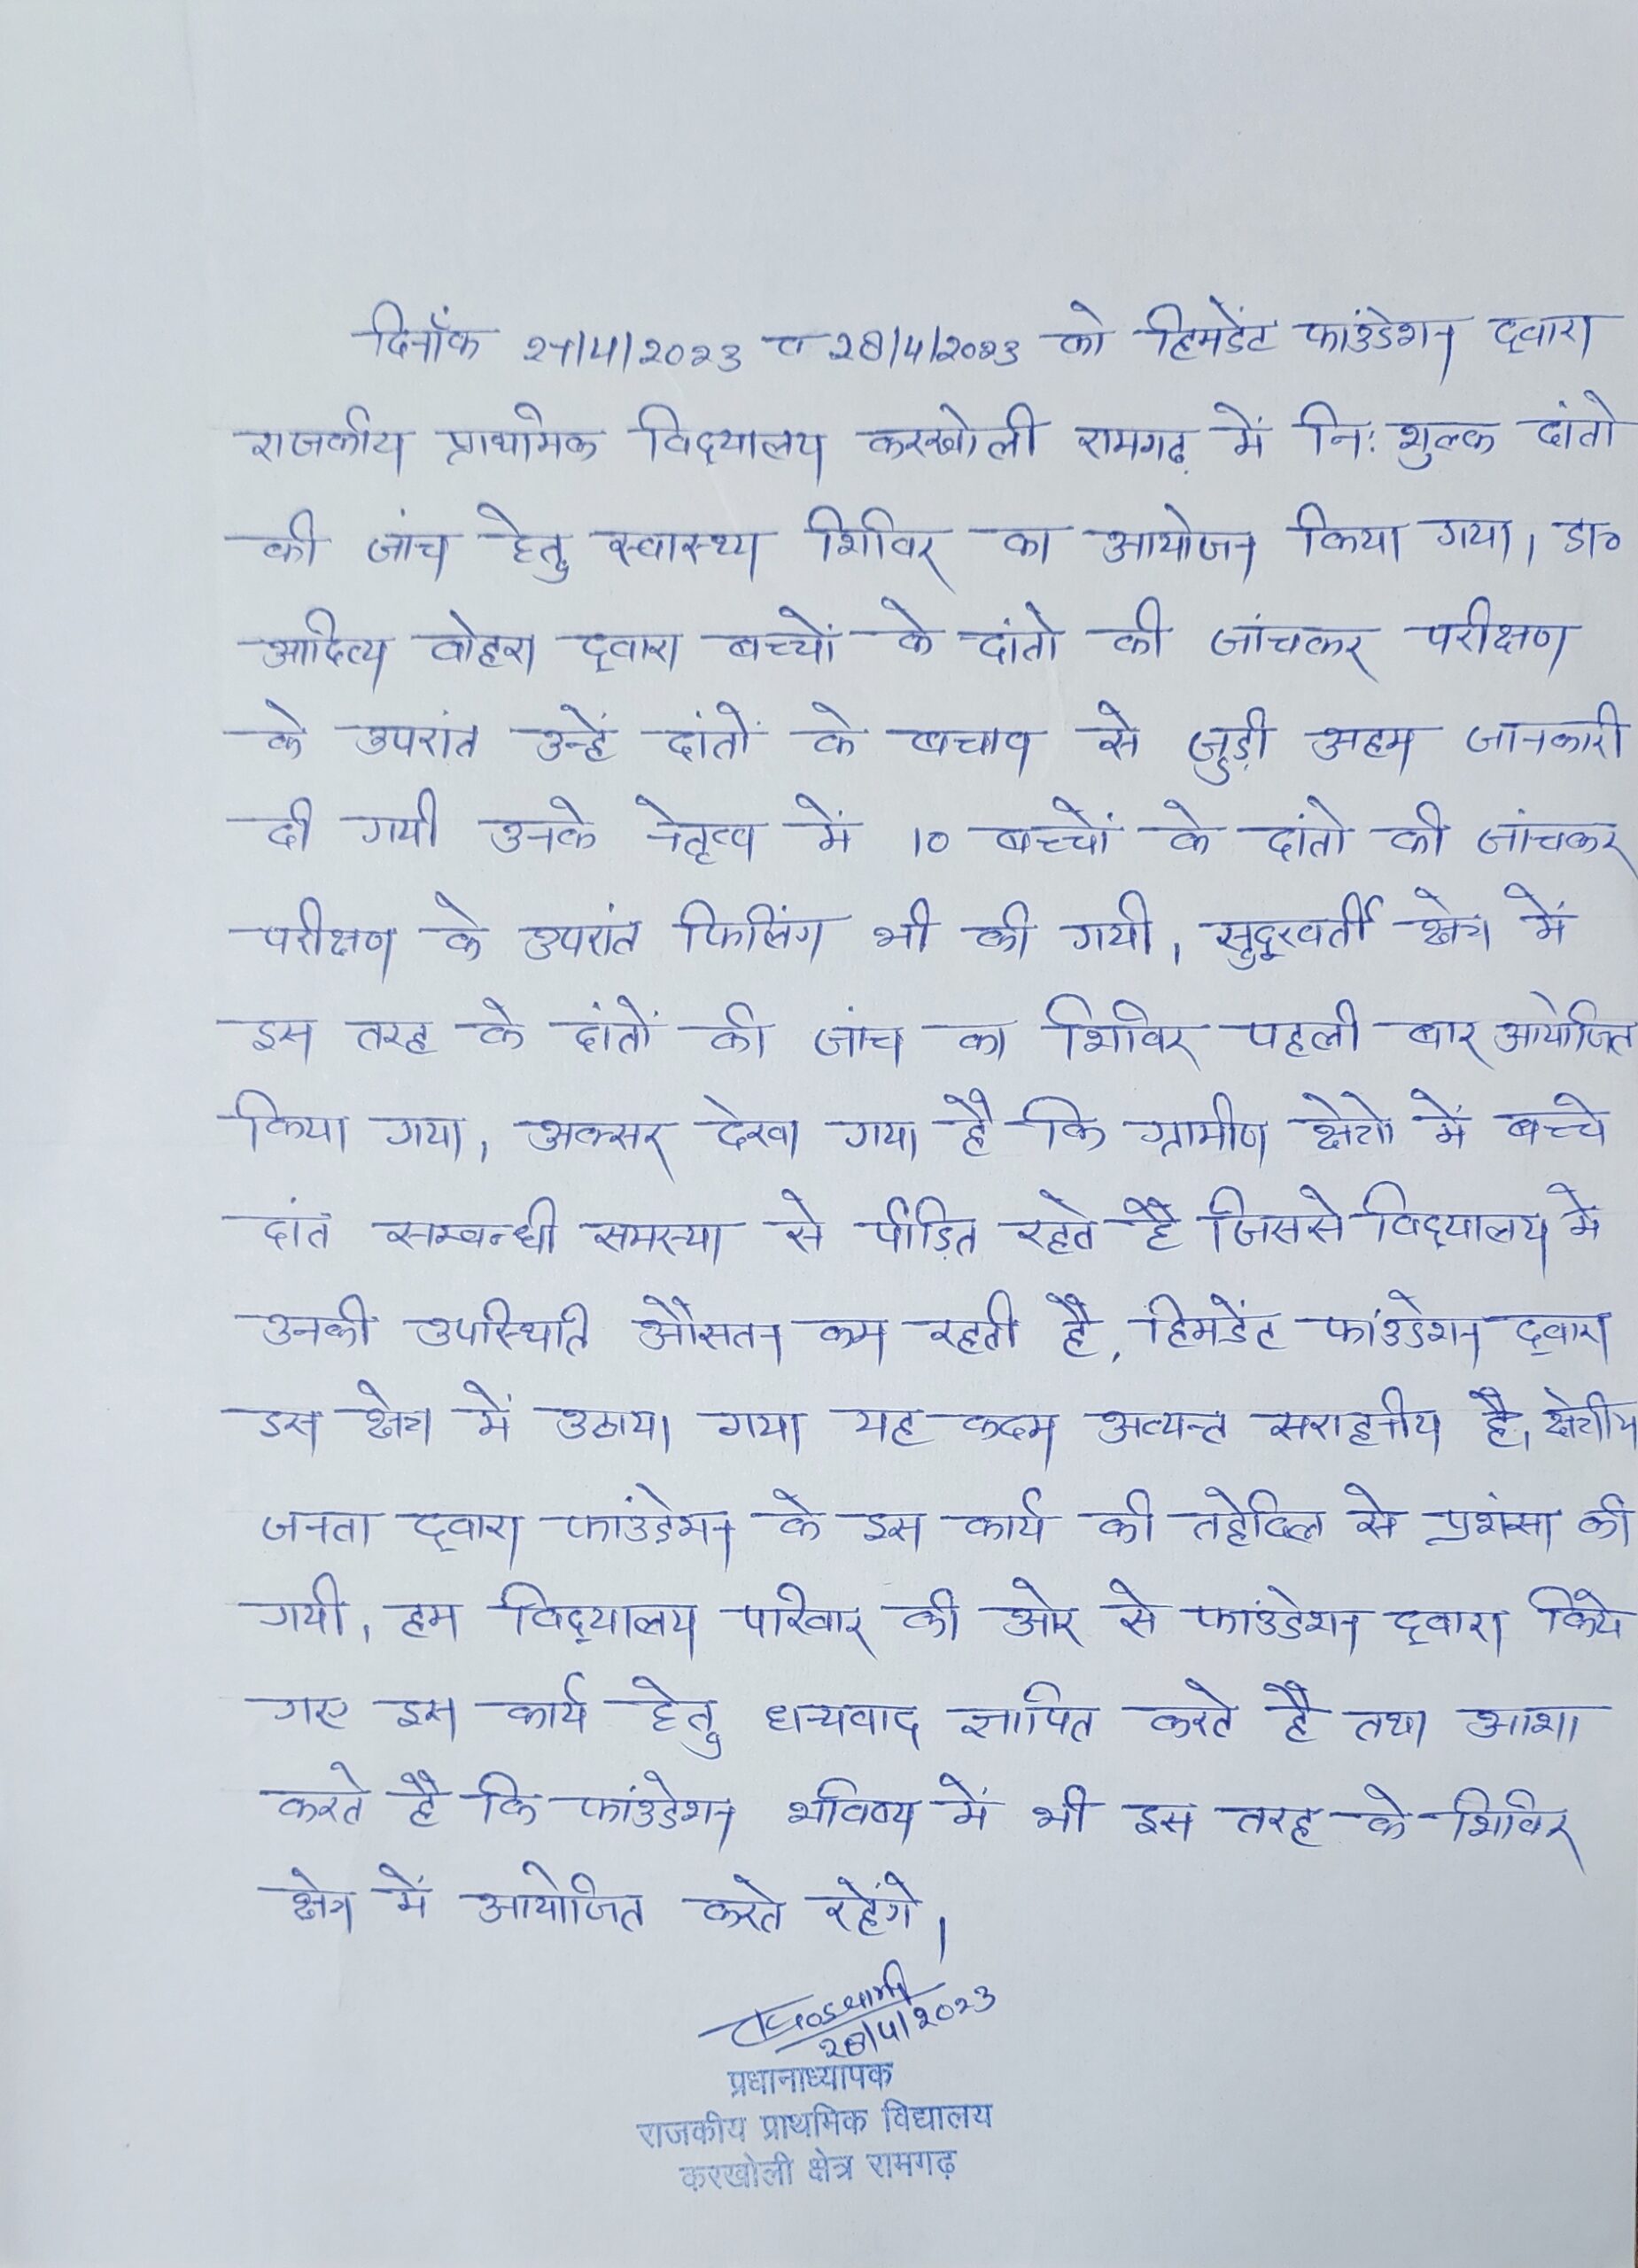 दिनाँक 27/4/2023 व 28/4/2023 को हिमडेंट फांउडेशन द्वारा
राजकीय प्राथमिक विद्यालय करखोली रामगढ़ में नि: शुल्क दांतो
की जांच हेतु स्वास्थ्य शिविर का आयोजन किया गया। डा०
आदित्य वोहरा द्वारा बच्चों के दांतो की जांचकर परीक्षण
के उपरांत उन्हें दांतों के बचाव से जुड़ी अहम जानकारी
दी गयी उनके नेतृत्व में 10 बच्चों के दांतो की जांचकर
परीक्षण के उपरांत फिलिंग भी की गयी, सुदूरवर्ती क्षेत्र में
इस तरह के दांतों की जांच का शिविर पहली बार आयोजित
किया गया, अक्सर देखा गया है कि ग्रामीण क्षेत्रो में बच्चे
दांत सम्बन्धी समस्या से पीड़ित रहते है जिससे विद्यालय में
उनकी उपस्थिति औसतन कम रहती है, हिमडेंट फांउडेशन द्वारा
इस क्षेत्र में उठाया गया यह कदम अत्यन्त सराहनीय है, क्षेत्रीय
जनता द्वारा फांउडेशन के इस कार्य की तहेदिल से प्रशंसा की
गयी, हम विद्यालय परिवार की ओर से फांउडेशन द्वारा किये
गए इस कार्य हेतु धन्यवाद ज्ञापित करते है तथा आशा
करते है कि फांउडेशन भविष्य में भी इस तरह के शिविर
क्षेत्र में आयोजित करते रहेंगे।
28/4/2023
प्रधानाध्यापक
राजकीय प्राथमिक विद्यालय
करखोली क्षेत्र रामगढ़